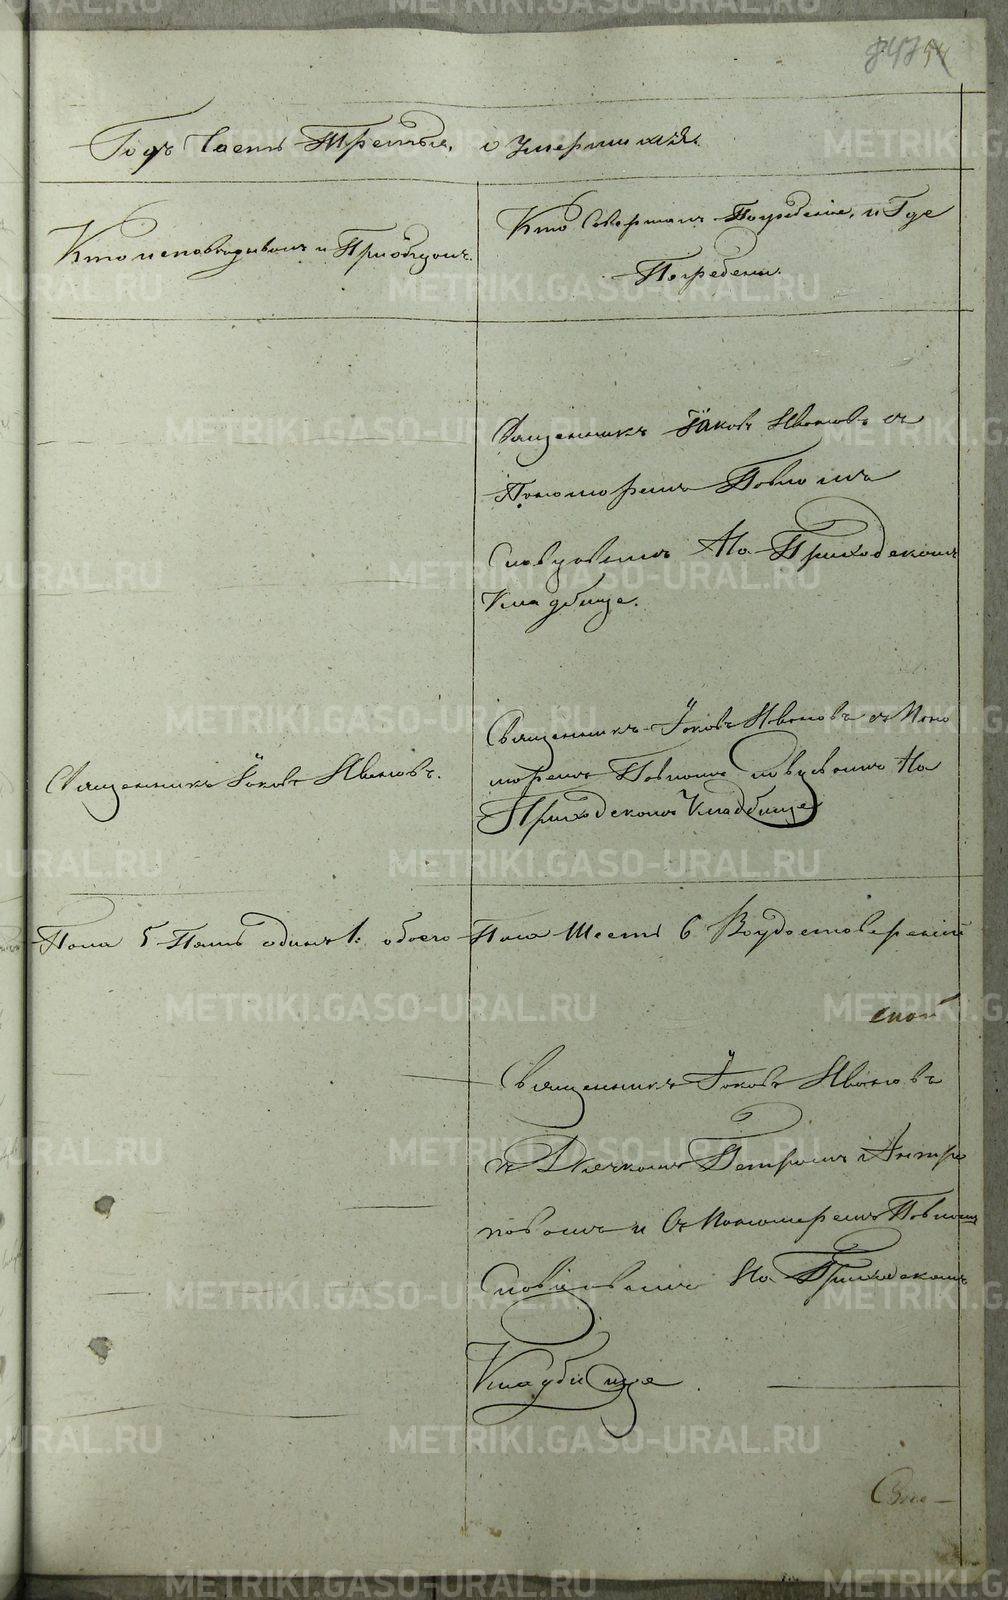 Годъ Часть Третья, о умершихъ.
Кто исповѣдывалъ и Пріобщалъ.
Кто Совершалъ Погребеніе, и Где
Погребены.
Священникъ Іаковъ Ивановъ съ
Пономоремъ Павломъ
На Приходскомъ
Кладбище.
Священникъ Іаковъ Ивановъ.
Священникъ Іаковъ Ивановъ съ Поно
моремъ Павломъ На
Приходскомъ Кладбище
Пола 5 Пять одинъ 1. обоего Пола Шесть 6 Воудостовереніи
Священникъ Іаковъ Ивановъ
съ Дьячкомъ Петромъ Антро
повымъ и Съ Пономеремъ Павломъ
На Приходскомъ
Кладбище
METRIKI.GASO-URAL.RU